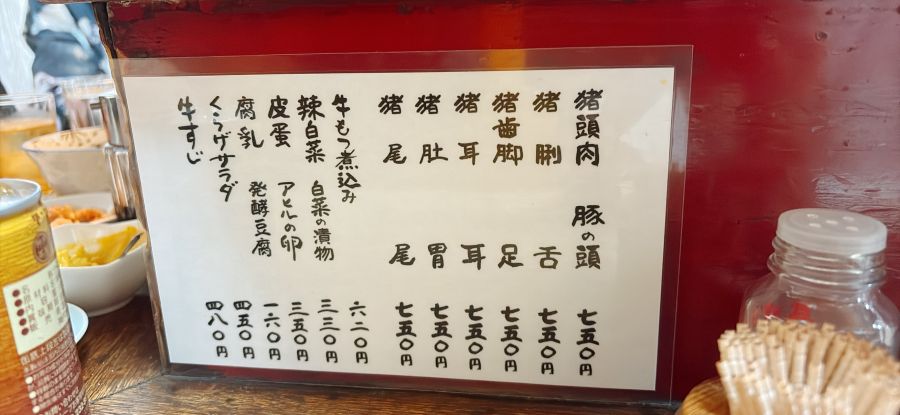 猪頭肉 豚の頭 七五〇円
猪脷 舌 七五〇円
猪歯脚 足 七五〇円
猪耳 耳 七五〇円
猪肚 胃 七五〇円
猪尾 尾 七五〇円
牛もつ煮込み 六二〇円
辣白菜 白菜の漬物 三三〇円
皮蛋 アヒルの卵 三五〇円
腐乳 発酵豆腐 一六〇円
くらげサラダ 四五〇円
牛すじ 四八〇円